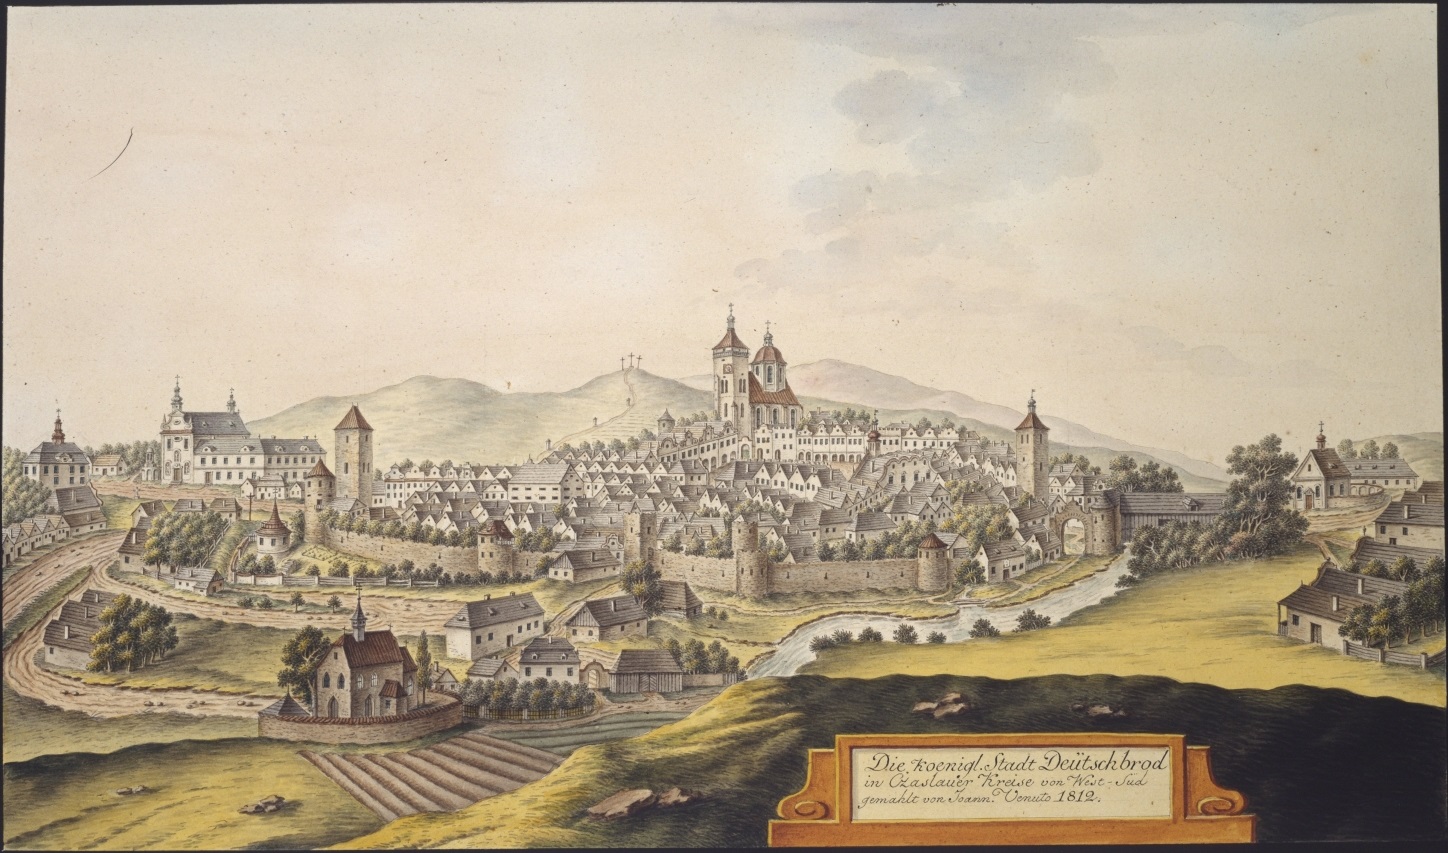 Die koenigl. Stadt Deütschbrod
in Czaslauer Kreise von West-Sud
gemahlt von Joann. Venuto 1812.